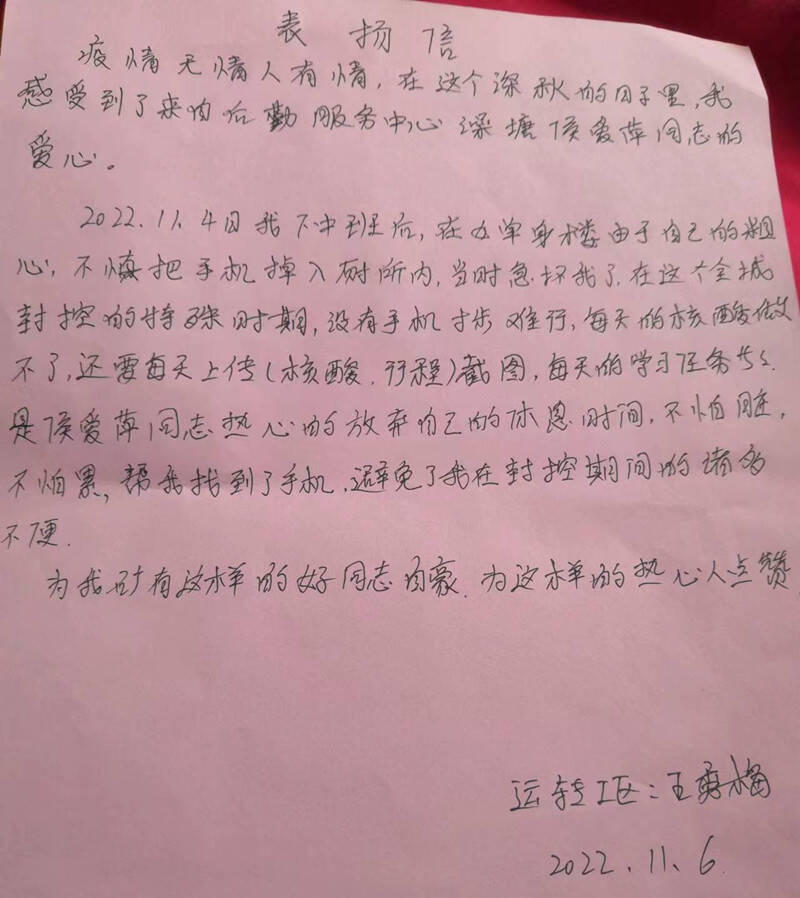 表扬信
疫情无情人有情，在这个深秋的日子里，我
感受到了来自后勤服务中心深塘侯爱萍同志的
爱心。
2022.11.4日我下中班后，在女单身楼由于自己的粗
心，不慎把手机掉入厕所内，当时急坏我了，在这个全城
封控的特殊时期，没有手机寸步难行，每天的核酸做
不了，还要每天上传（核酸．行程）截图，每天的学习任务
是侯爱萍同志热心的放弃自己的休息时间，不怕脏，
不怕累，帮我找到了手机．避免了我在封控期间的诸多
不便．
为我矿有这样的好同志自豪．为这样的热心人点赞
运转工区：王梅
2022.11.6